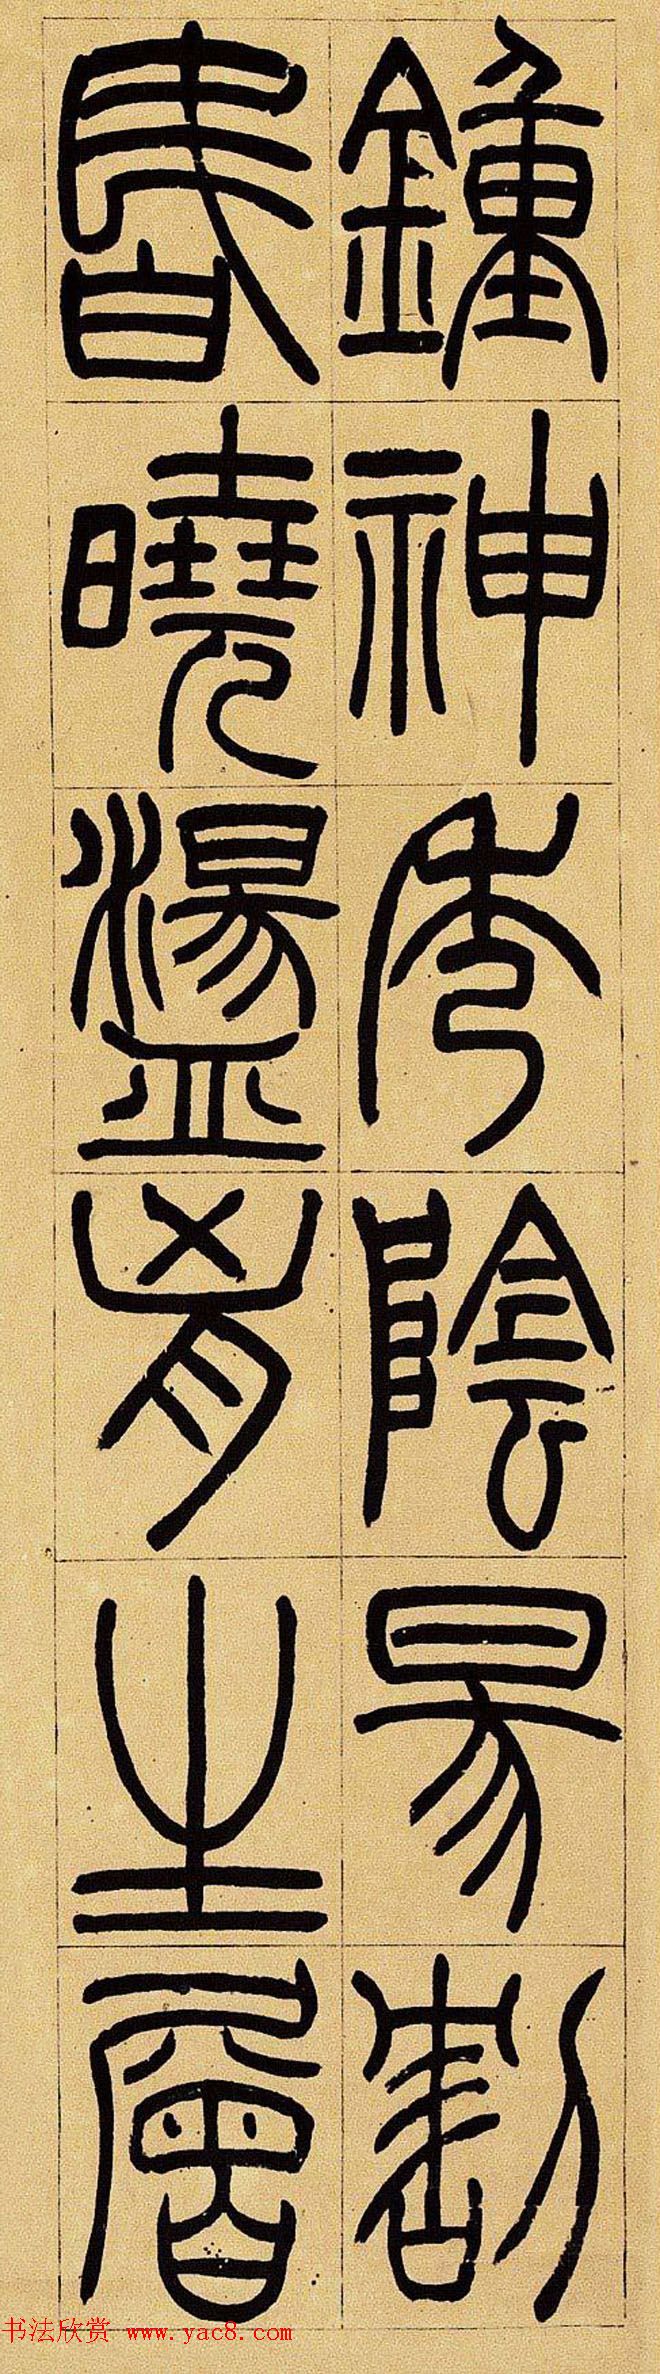 鍾神秀陰昜割
昏曉盪胷生層
书法欣赏 www.yac8.com